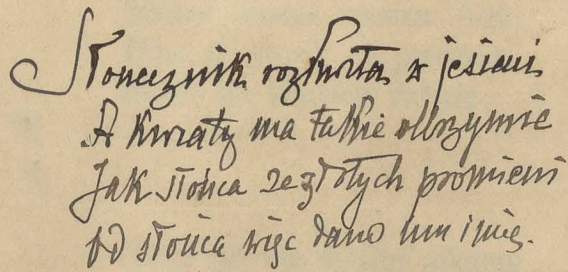 Słonecznik rozkwita w jesieni
A kwiaty ma takie olbrzymie
Jak słońca ze złotych promieni
Od słońca więc dano mu imię.